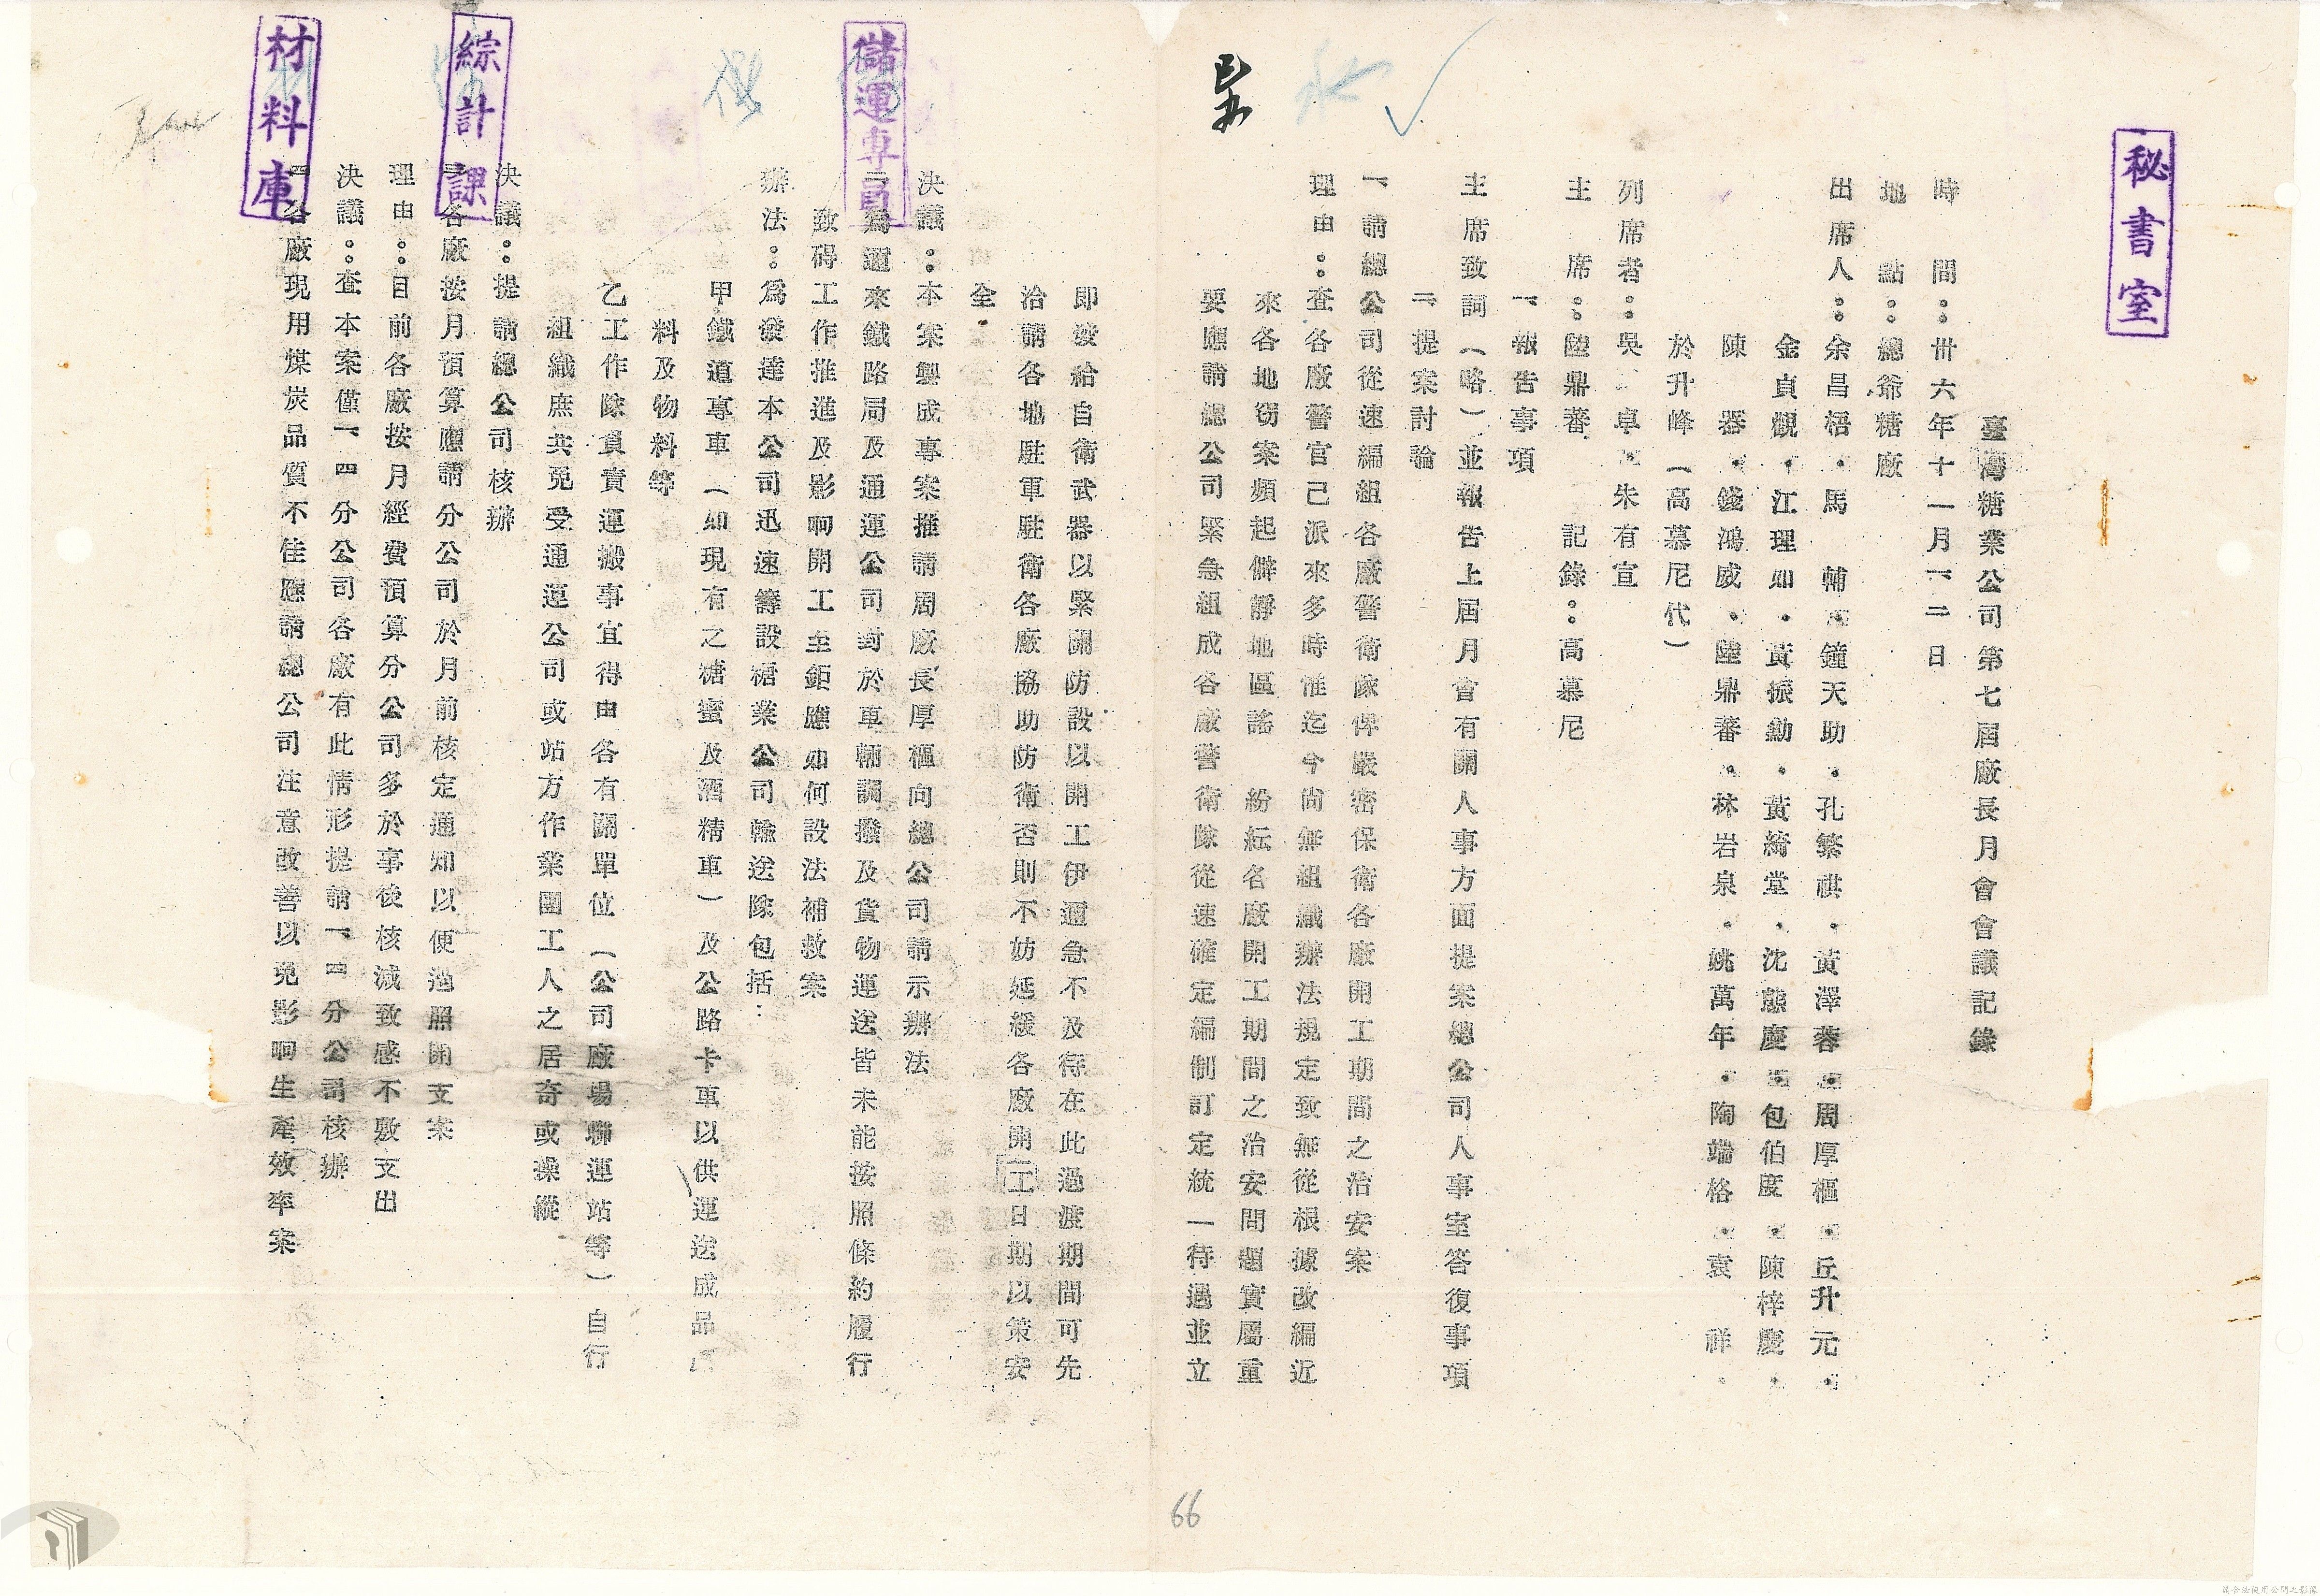 秘書室
臺灣糖業公司第七屆廠長月會會議記錄
時 間：卅六年十一月一二日
地 點：總爺糖廠
出席人：余昌梧．馬 輔．鐘天助．孔繁祺．黃澤蓉．周厚樞．丘升元．
金貞觀．江理如．黃振勳．黃綺堂．沈態慶．包伯度．陳梓慶．
陳 器．錢鴻威．陸鼎蕃．林岩泉．姚萬年．陶端格．袁 祥．
於升峰（高慕尼代）
列席者：吳 卓．朱有宣
主 席：陸鼎蕃 記錄：高慕尼
一、報告事項
主席致詞（略）並報告上屆月會有關人事方面提案總公司人事室答復事項
二、提案討論
一、請總公司從速編組各廠警衛隊俾嚴密保衛各廠開工期間之治安案
理由：查各廠警官已派來多時惟迄今尚無組織辦法規定致無從根據改編近
來各地窃案頻起僻靜地區謠 紛紜名廠開工期間之治安問題實屬重
要應請總公司緊急組成各廠警衛隊從速確定編制訂定統一待遇並立
即發給自衛武器以緊關防設以開工伊邇急不及待在此過渡期間可先
洽請各地駐軍駐衛各廠協助防衛否則不妨延緩各廠開工日期以策安
全．
決議：本案製成專案推請周廠長厚樞向總公司請示辦法
儲運專員
二為邇來鐵路局及通運公司對於車輛調撥及貨物運送皆未能按照條約履行
致碍工作推進及影响開工至鉅應如何設法補救案
辦法：為發達本公司迅速籌設糖業公司輸送隊包括：
甲鐵道專車（如現有之糖蜜及酒精車）及公路卡車以供運送成品
料及物料等
乙工作除負責運搬事宜得由各有關單位（公司廠場聯運站等）自行
組織庶共免受通運公司或站方作業團工人之居奇或操縱
決議：提請總公司核辦
綜計課
三各廠按月預算應請分公司於月前核定通知以便遵照開支案
理由：目前各廠按月經費預算分公司多於事後核減致感不敷支出
決議：查本案僅一、四分公司各廠有此情形提請一、四分公司核辦
材料庫
四各廠現用煤炭品質不佳應請總公司注意改善以免影响生產效率案
66
請合法使用公開之影像